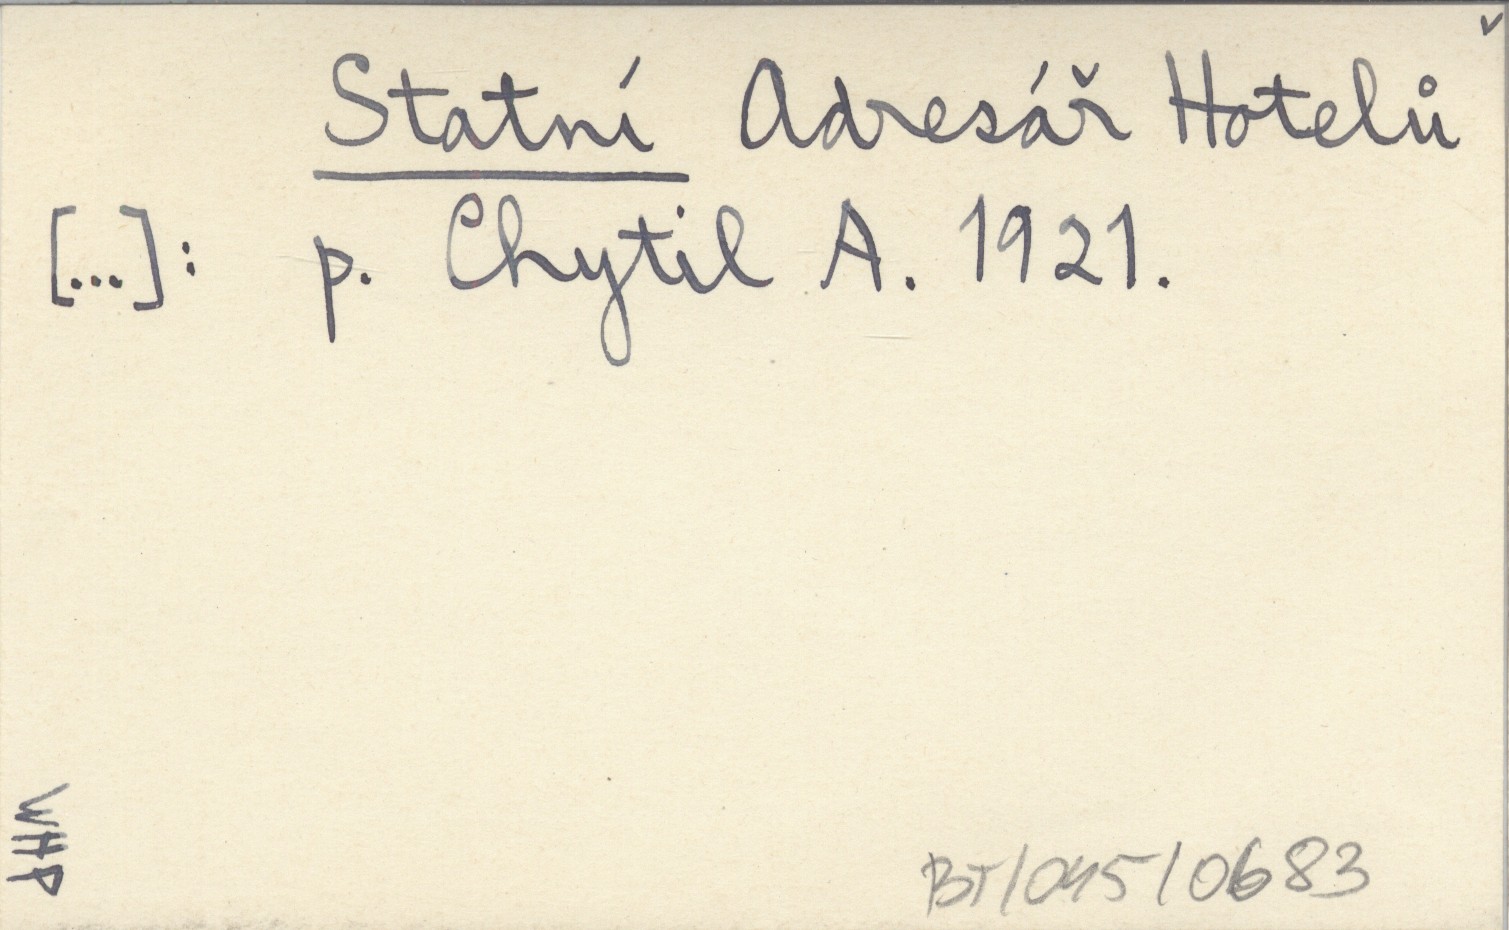 Statní Adresář Hotelů
[...]: p. Chytil A. 1921.
WHP
BT/045/0683